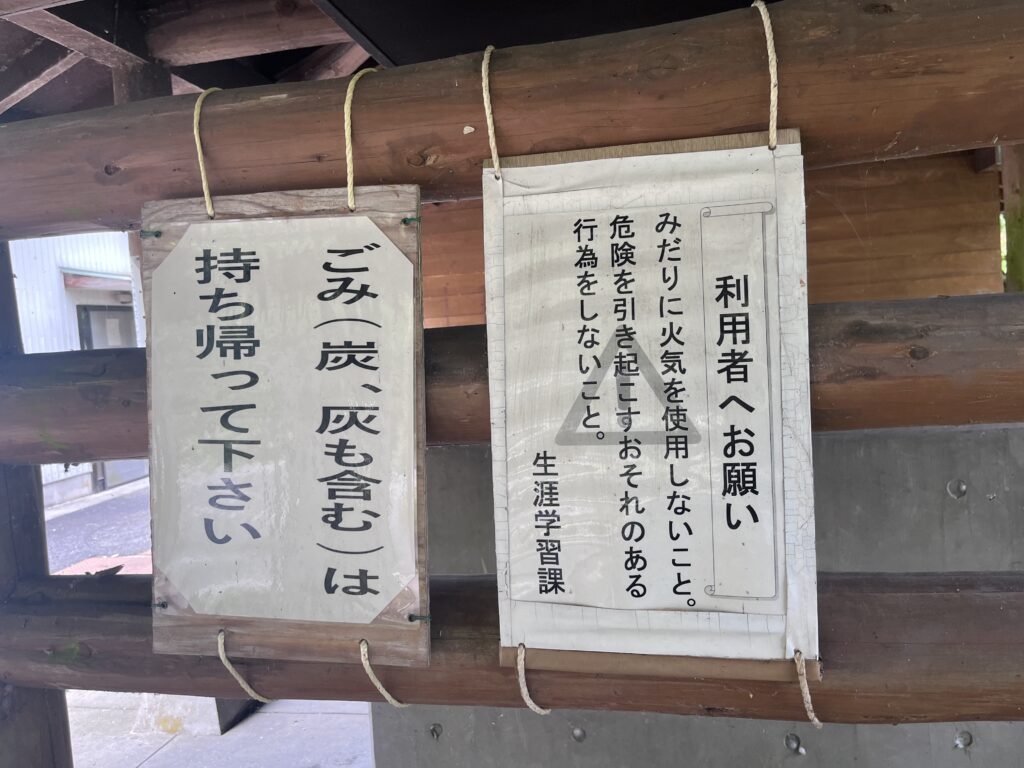 ごみ(炭、灰も含む)は
持ち帰って下さい
利用者へお願い
みだりに火気を使用しないこと。
危険を引き起こすおそれのある
行為をしないこと。
生涯学習課